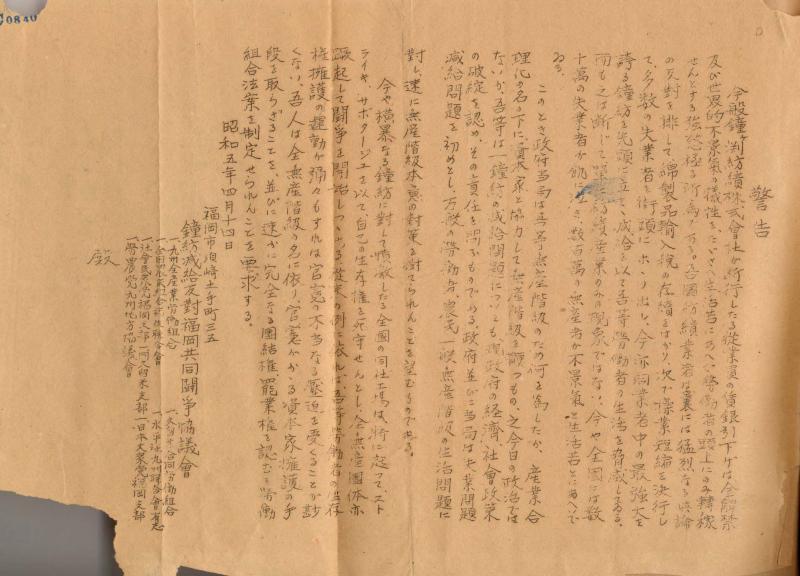 G0840
警告
今般鐘淵紡績株式會社が断行したる従業員の賃銀引下げは金解禁
及び世界的不景気の犠牲を、たゞさへ生活苦にあへぐ労働者の頭上にのみ轉稼
せんとする強慾極る所為である。吾國紡績業者は裏には猛烈なる輿論
の反対を排して綿製品輸入税の存續をはかり、次で操業短縮を決行し
て、多数の失業者を街頭にホーリ出し、今亦同業者中の最強大を
誇る鐘紡を先頭に立て、減給を以て吾等労働者の生活を脅威しゐる。
而も之は断じて紡績産業のみの現象ではない、今や全國には数
十萬の失業者が飢に泣き、数百萬の無産者が不景気と生活苦とにあへいで
ゐる。
このとき政府当局は吾等無産階級のため何を為したか、産業合
理化の名の下に、資本家と協力して無産階級を
ないか、吾等は一鐘紡の減給問題についても、現政府の経済、社會政策
の破綻を認め、その責任を問ふものである、政府並びに当局は失業問題
減給問題を初めとし、万般の労働者、農民、一般無産階級の生活問題に
対し、速に無産階級本意の対策を樹てられんことを望むものである。
今や横暴なる鐘紡に対して憤激したる全國の同社工場は、特に起ってスト
ライキ、サボタージュを以て自己の生存権を死守せんとし、全無産團体亦
蹶起して闘争を開始しつゝある従来の例に依れば、吾等労働者の生存
権擁護の運動が動々もすれば官憲の不当なる壓迫を受くることが尠
くない、吾人は全無産階級の名に依り、官憲がかゝる資本家擁護の手
段を取らざることを、並びに速かに完全なる團結権、罷業権を認むる労働
組合法案を制定せられんことを要求する。
昭和五年四月十四日
福岡市須崎土手町三五
鐘紡減給反対福岡共同闘争協議會
一、九州全産業労働組合
一、大衆党合同労働組合
一、水平社九州聯合會有志
一、社會民衆党福岡支部 一同久留米支部 一日本大衆党福岡支部
一、労農党九州地方協議會
殿